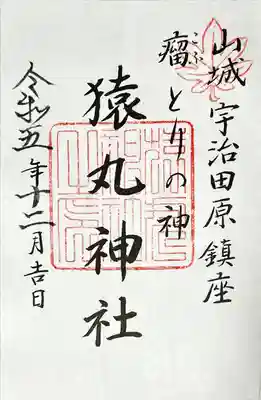 山城宇治田原鎮座
瘤とりの神
こぶ
猿丸神社
令和五年十二月吉日